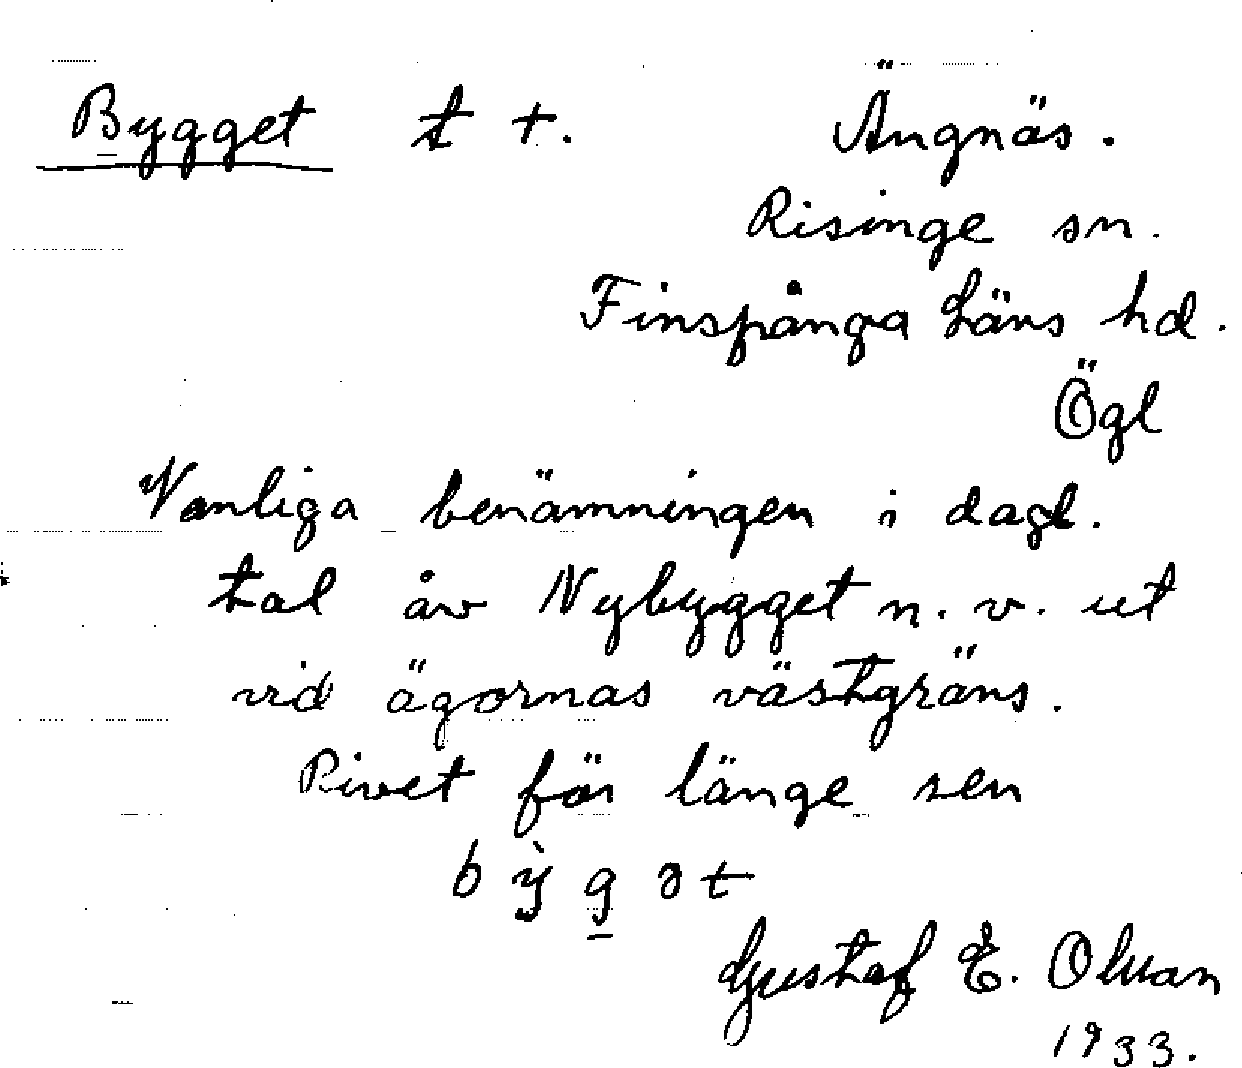 Bygget t t. Ängnäs.
Risinge sn.
Finspånga läns hd.
Ögl
Vanliga benämningen i dagl.
tal åv Nybygget n.v. ut
vid ägornas västgräns.
Rivet för länge sen
bỳgət
Gustaf E.
1933.